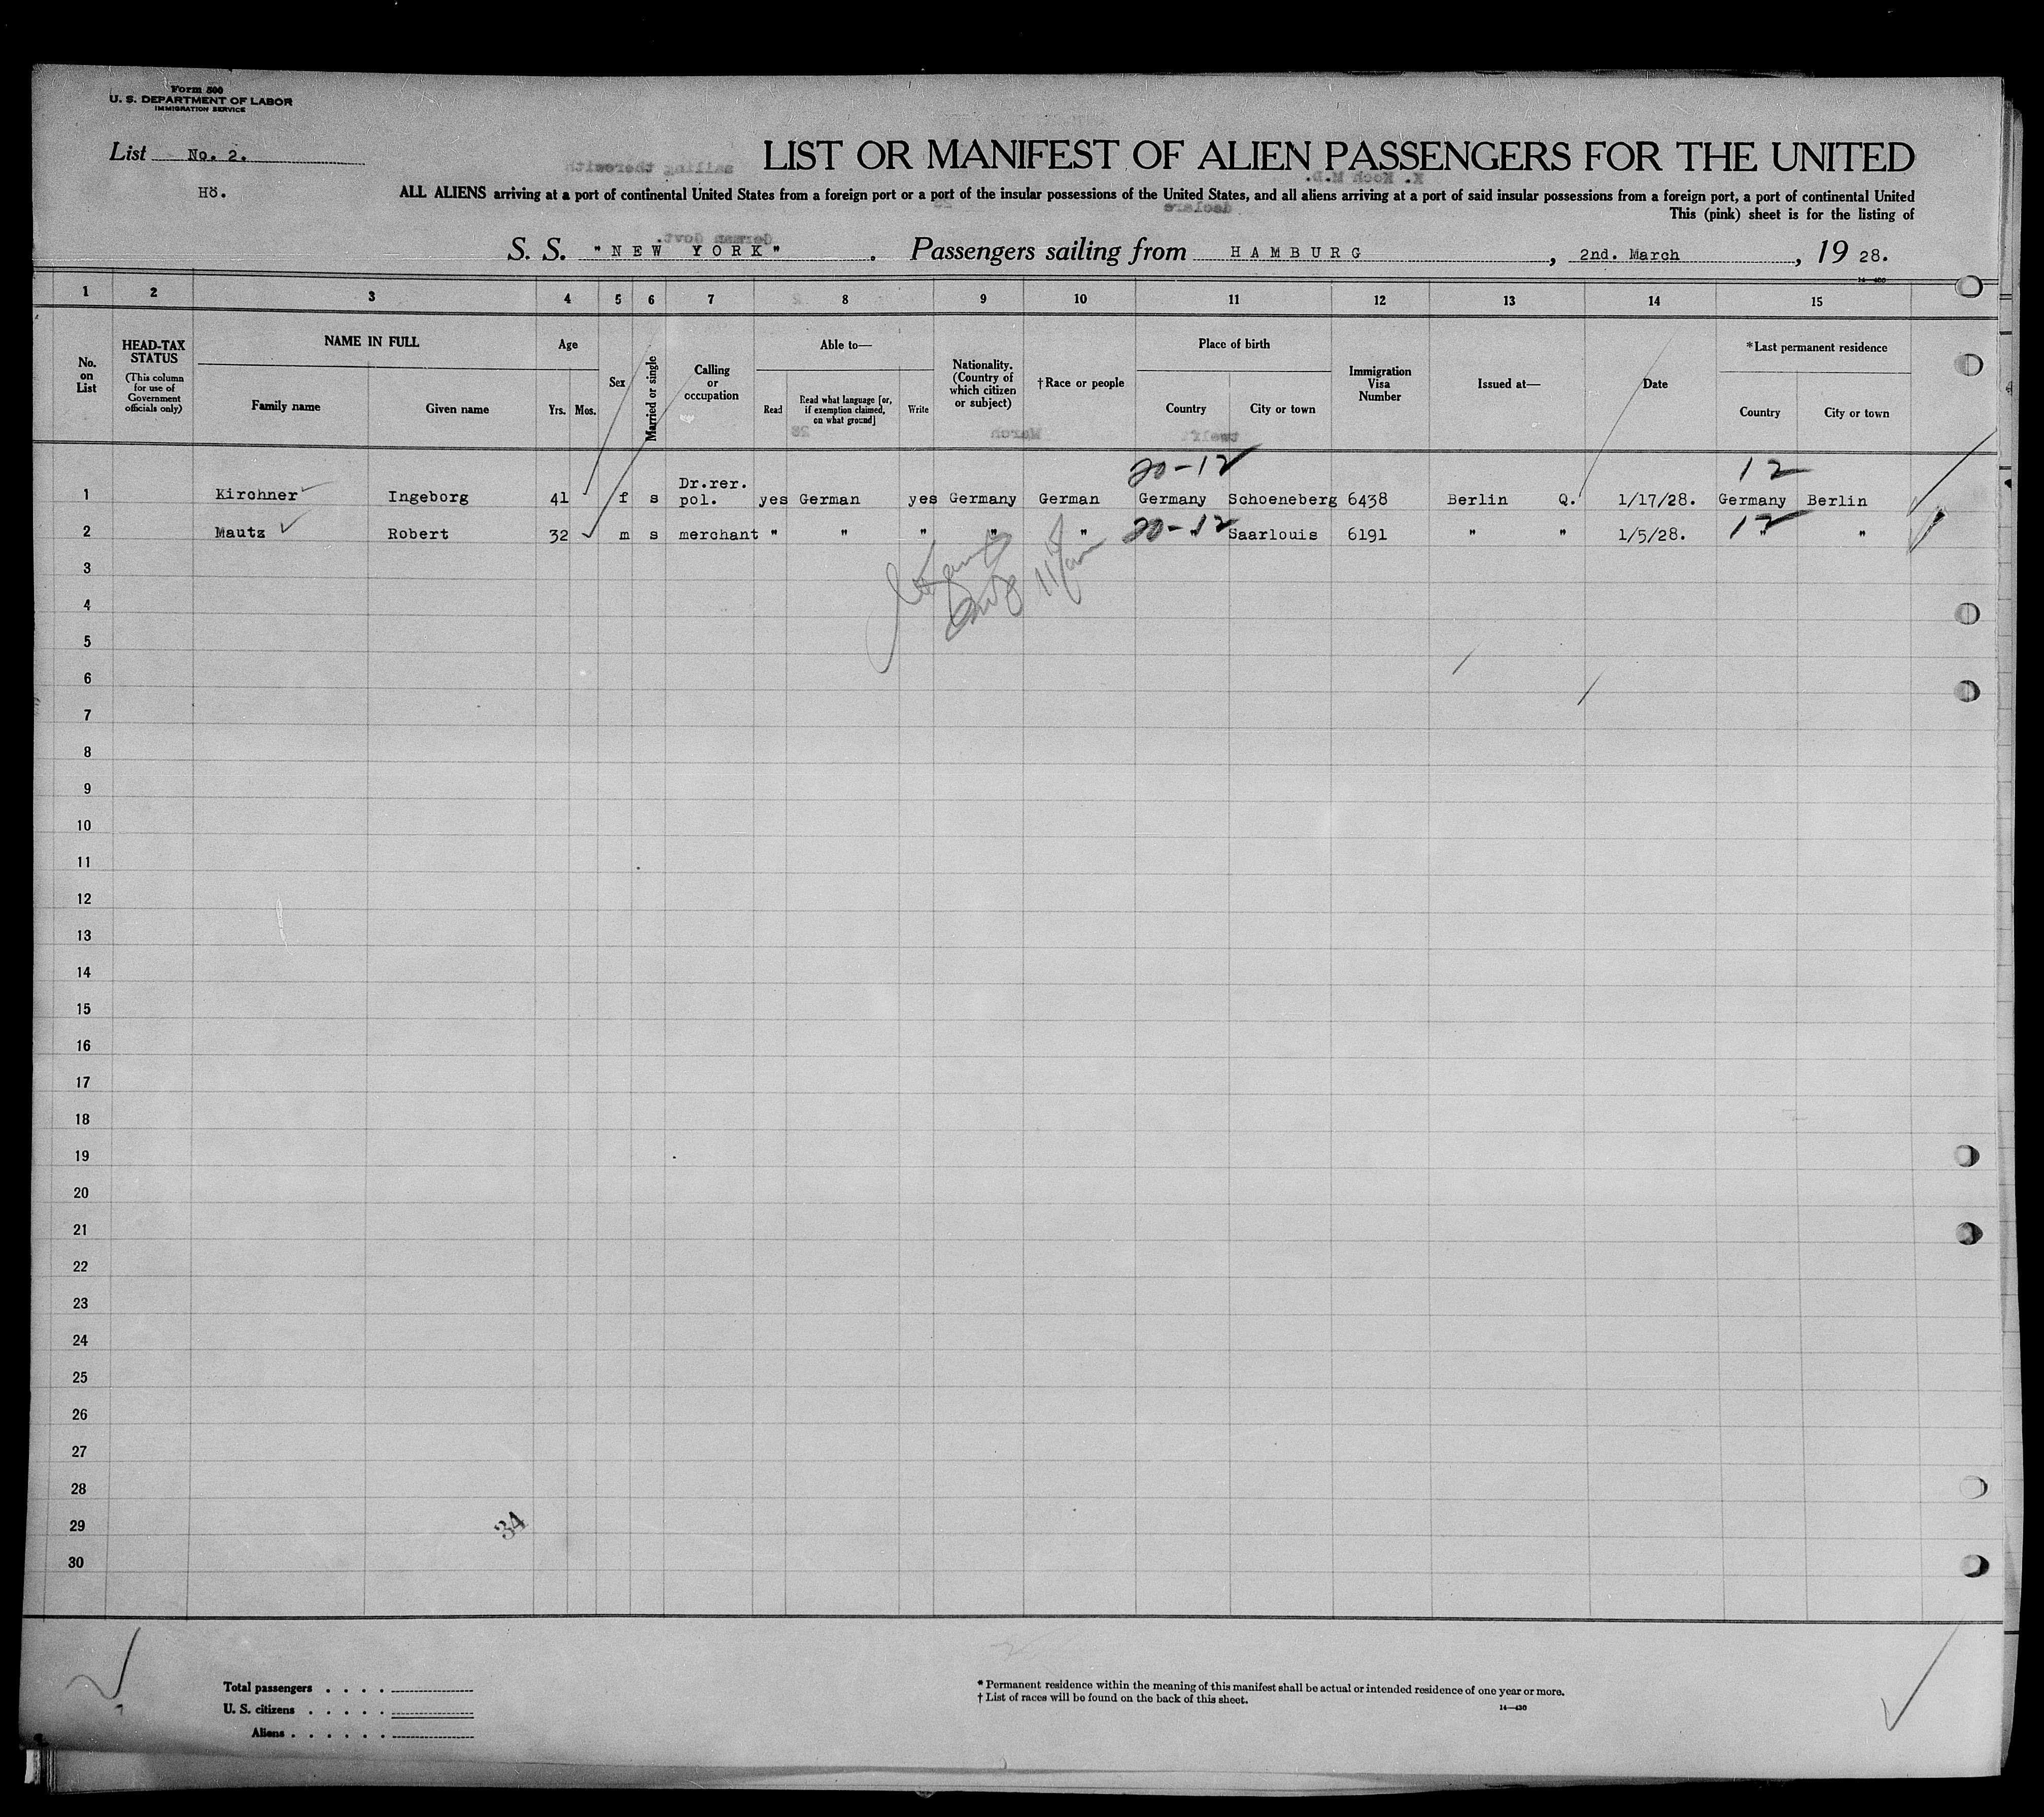 Form 500
U. S. DEPARTMENT OF LABOR
IMMIGRATION SERVICE
List No. 2.
Hö.
LIST OR MANIFEST OF ALIEN PASSENGERS FOR THE UNITED
ALL ALIENS arriving at a port of continental United States from a foreign port or a port of the insular possessions of the United States, and all aliens arriving at a port of said insular possessions from a foreign port, a port of continental United
This (pink) sheet is for the listing of
S. S. "NEW YORK". Passengers sailing from HAMBURG, 2nd. March, 19 28.
14—430
1 2 3 4 5 6 7 8 9 10 11 12 13 14 15
No. on List
HEAD-TAX STATUS
(This column for use of Government officials only)
NAME IN FULL
Family name Given name
Age
Yrs. Mos.
Sex
Married or single
Calling or occupation
Able to—
Read
Read what language [or, if exemption claimed, on what ground]
Write
Nationality. (Country of which citizen or subject)
†Race or people
Place of birth
Country City or town
Immigration Visa Number
Issued at—
Date
*Last permanent residence
Country City or town
20-12 12
1 Kirchner Ingeborg 41 f s Dr.rer. pol. yes German yes Germany German Germany Schoeneberg 6438 Berlin Q. 1/17/28. Germany Berlin
2 Mautz Robert 32 m s merchant " " " " " 20-12 " Saarlouis 6191 " " 1/5/28. 12 " "
3
4
5
6
7
8
9
10
11
12
13
14
15
16
17
18
19
20
21
22
23
24
25
26
27
28
29
34
30
Total passengers . . . .
U. S. citizens . . . . .
Aliens . . . . . .
* Permanent residence within the meaning of this manifest shall be actual or intended residence of one year or more.
† List of races will be found on the back of this sheet.
14—430